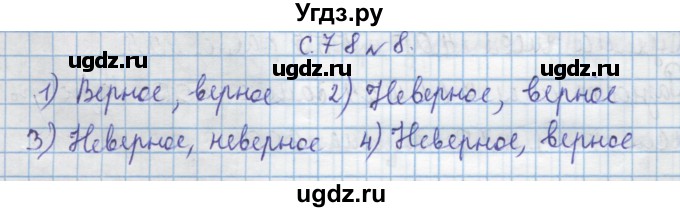 Угдз.ру
С. 78 № 8.
ugdz.ru ugdz.ru ugdz.ru
1) Верное, верное 2) Неверное, верное
3) Неверное, неверное 4) Неверное, верное
ugdz.ru ugdz.ru
ugdz.ru